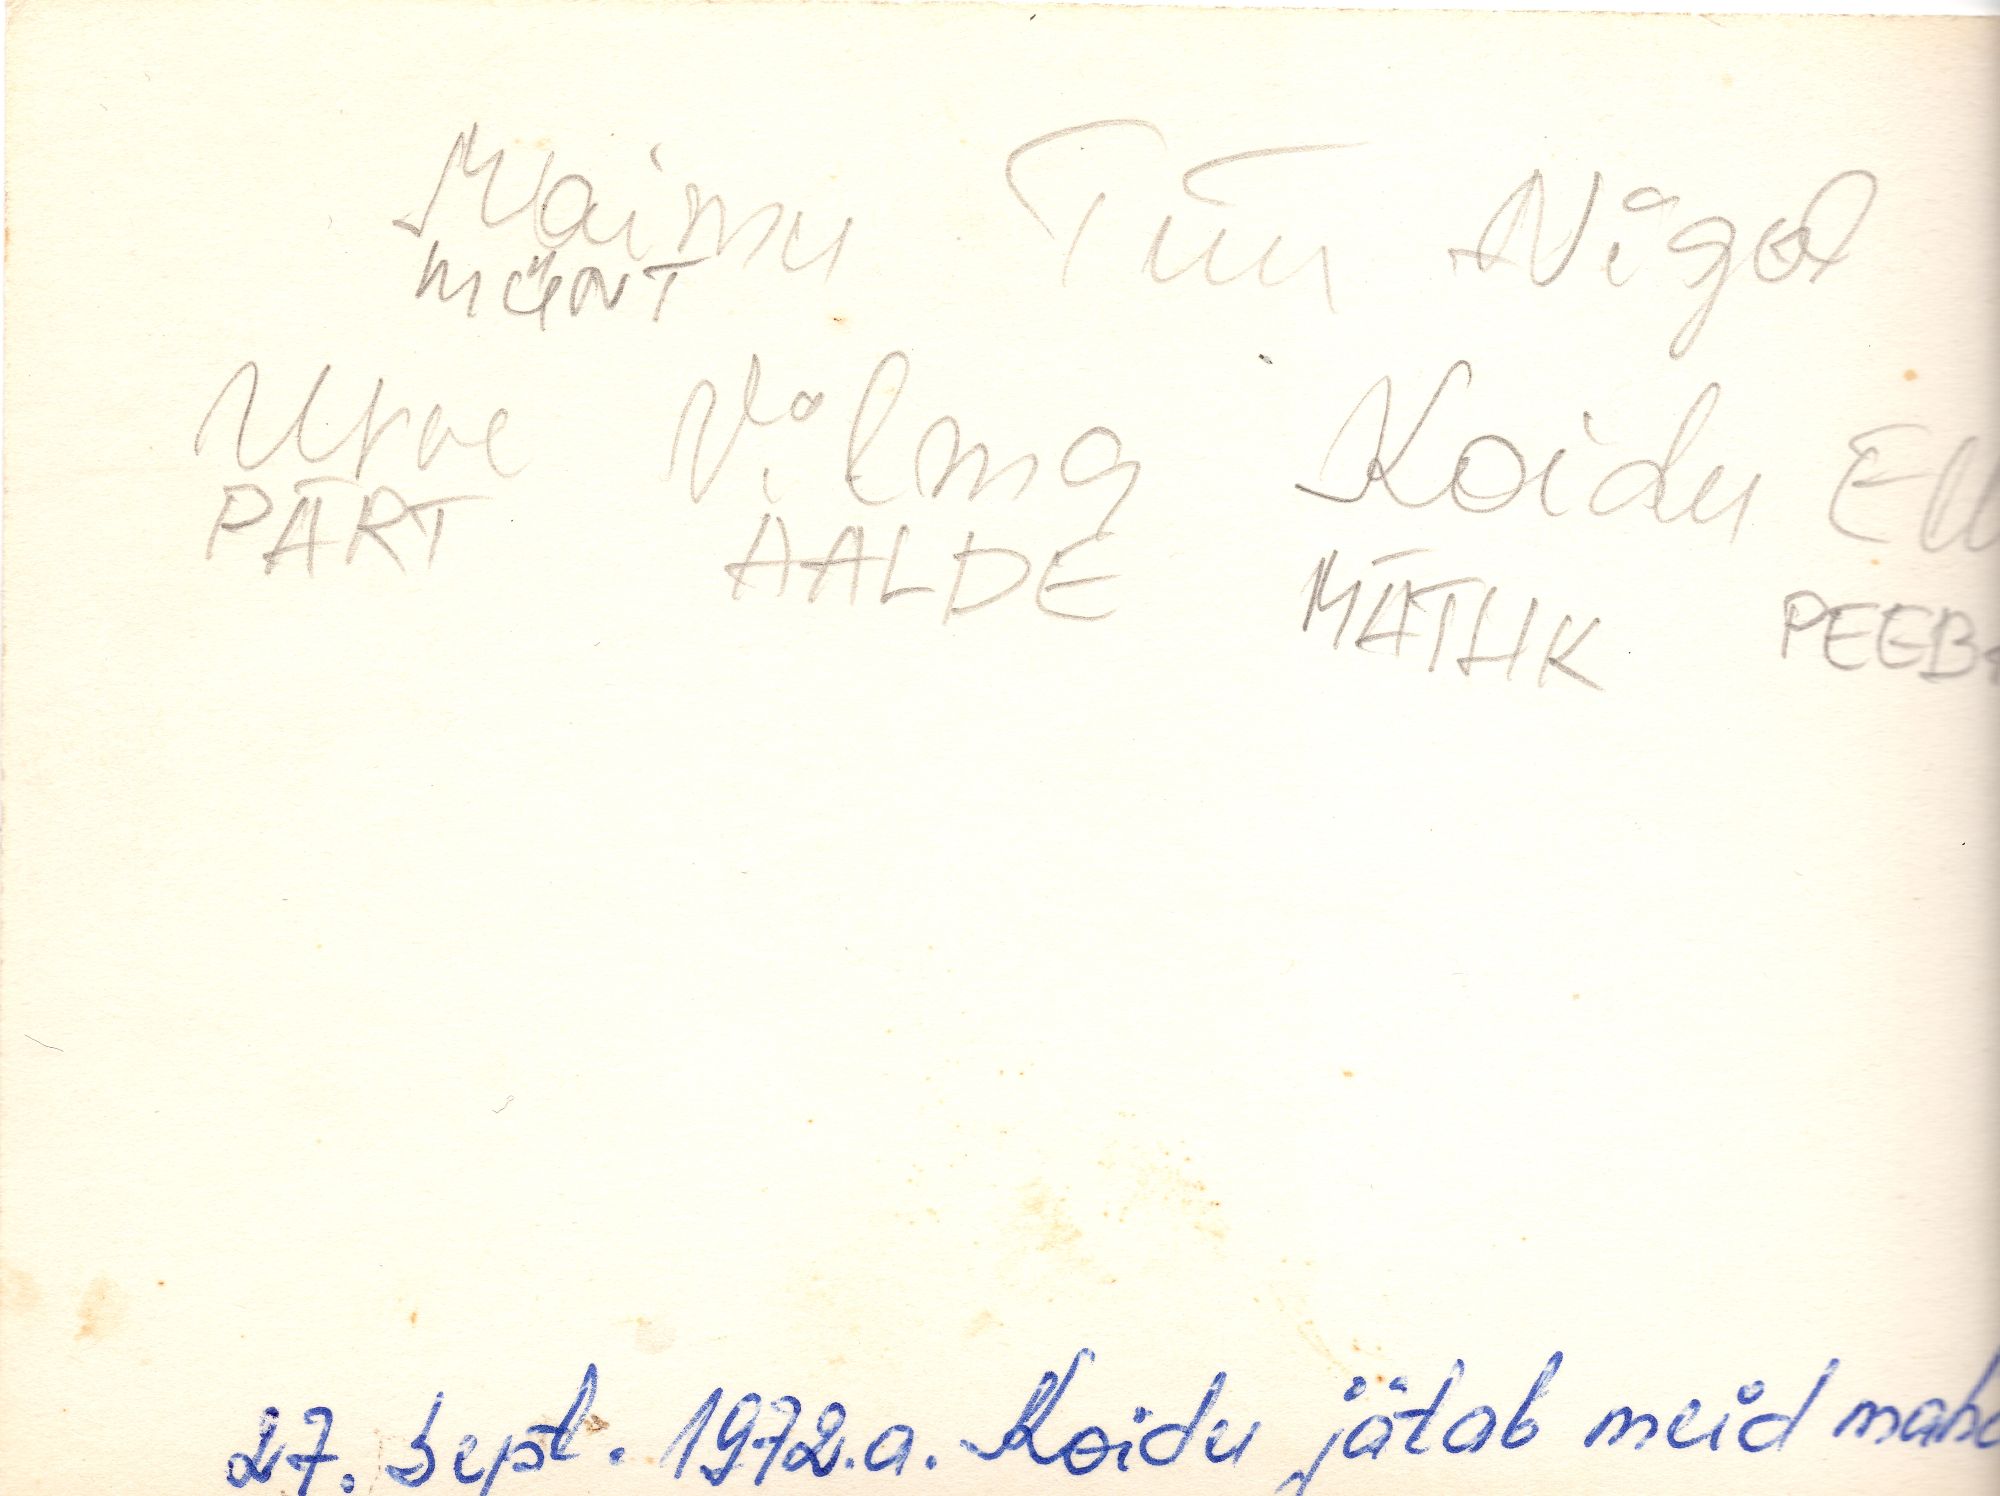 Maimu Tiiu Nigol
MÜNT
Urve Vilma Koidu Ell
PÄRT AALDE MÄTLIK PEEB
27. sept. 1972.a. Koidu jätab meid maha